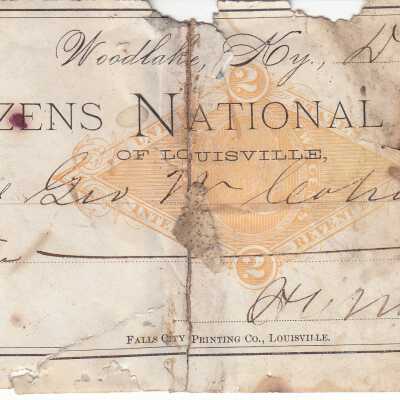 Woodlake, Ky., D
ZENS NATIONAL
OF LOUISVILLE,
Geo
INTE REVENUE
2
2
H.
FALLS CITY PRINTING CO., LOUISVILLE.